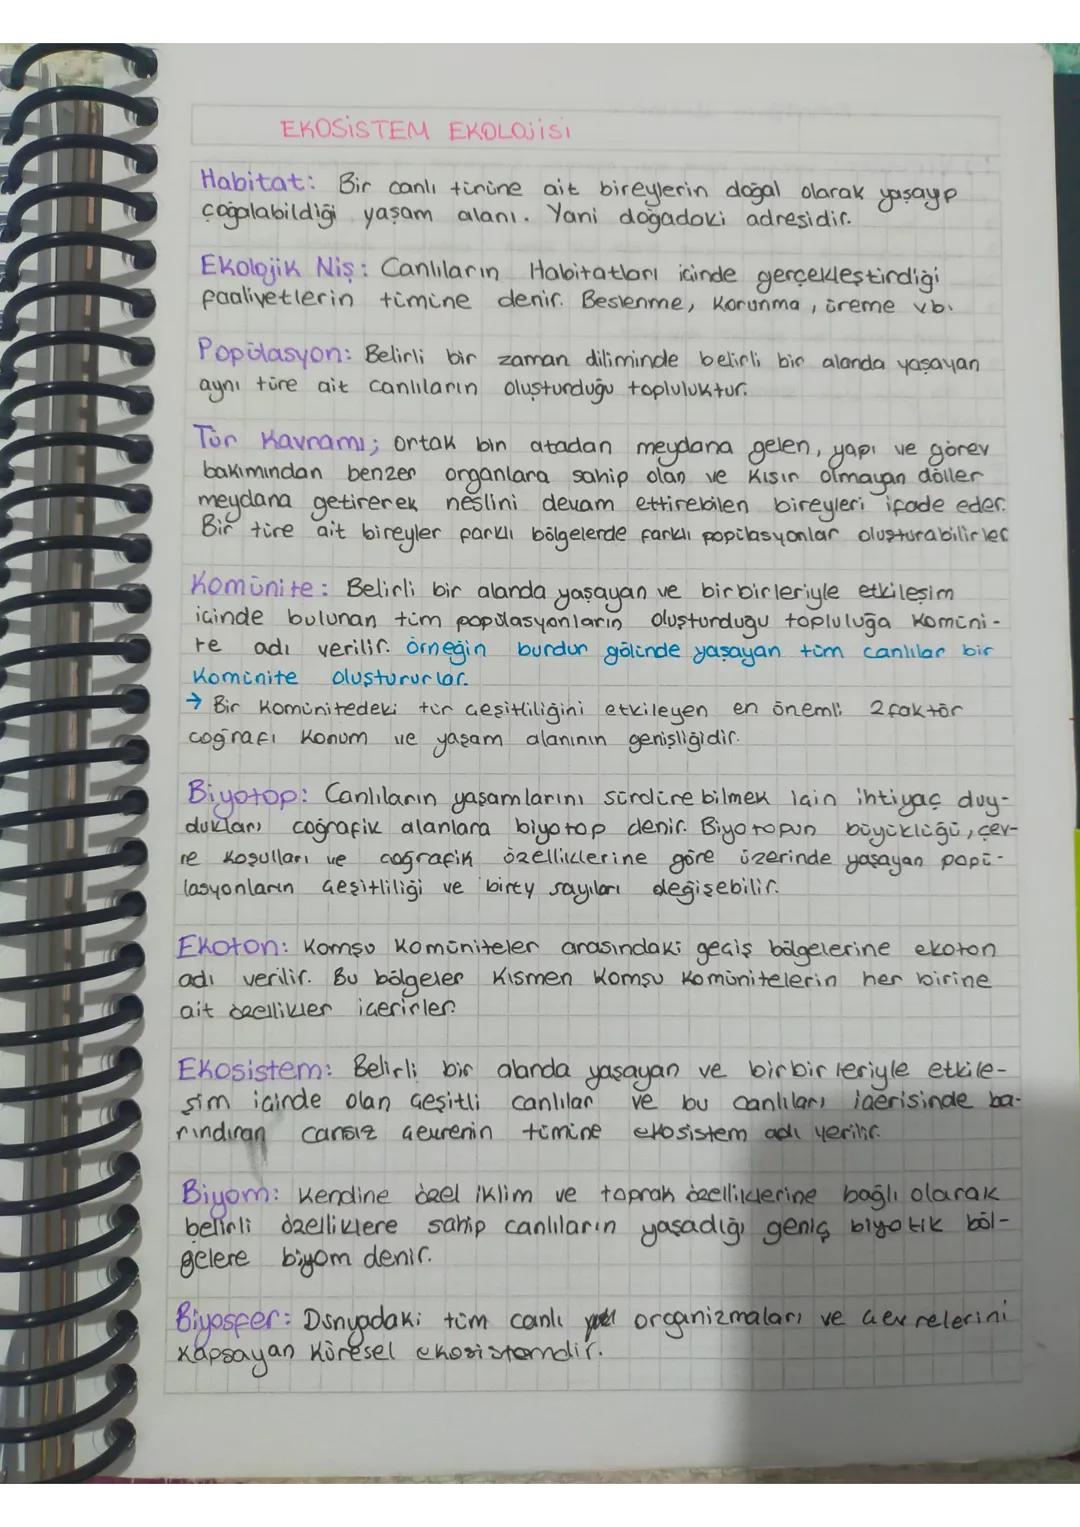 EKOSİSTEM EKOLOJİSİ
Habitat: Bir canlı türüne ait bireylerin doğal olarak yaşayıp
çoğalabildiği yaşam alanı. Yani doğadaki adresidir.
Ekolojik Niş: Canlıların Habitatları içinde gerçekleştirdiği
faaliyetlerin tümüne denir. Beslenme, Korunma, üreme vb.
Popülasyon: Belirli bir zaman diliminde belirli bir alanda yaşayan
aynı türe ait canlıların oluşturduğu topluluktur.
Tür Kavramı; ortak bir atadan meydana gelen, yapı ve görev
bakımından benzer organlara sahip olan ve Kısır olmayan döller
meydana getirerek neslini devam ettirebilen bireyleri ifade eder.
Bir türe ait bireyler farklı bölgelerde farklı popülasyonlar oluşturabilirler
Komünite: Belirli bir alanda yaşayan ve birbirleriyle etkileşim
içinde bulunan tüm popülasyonların oluşturduğu topluluğa Komüni-
te adı verilir. örneğin burdur gölünde yaşayan tüm canlılar bir
Komünite oluştururlar.
→ Bir Komünitedeki tür çeşitliliğini etkileyen en önemli 2 faktör
coğrafi Konum ve yaşam alanının genişliğidir.
Biyotop: Canlıların yaşamlarını sürdürebilmek için ihtiyaç duy-
dukları coğrafik alanlara biyotop denir. Biyotopun büyüklüğü, çev-
re Koşulları ve coğrafik özelliklerine göre üzerinde yaşayan popü-
lasyonların çeşitliliği ve birey sayıları değişebilir.
Ekoton: Komşu Komüniteler arasındaki geçiş bölgelerine ekoton
adı verilir. Bu bölgeler Kısmen Komşu Komünitelerin her birine
ait özellikler içerirler.
Ekosistem: Belirli bir alanda yaşayan ve birbirleriyle etkile-
şim içinde olan çeşitli canlılar ve bu canlıları içerisinde ba-
rındıran cansız çevrenin tümüne ekosistem adı verilir.
Biyom: Kendine özel iklim ve toprak özelliklerine bağlı olarak
belirli özelliklere sahip canlıların yaşadığı geniş biyotik böl-
gelere biyom denir.
Biyosfer: Dünyadaki tüm canlı organizmaları ve çevrelerini
Kapsayan Küresel ekosistemdir.